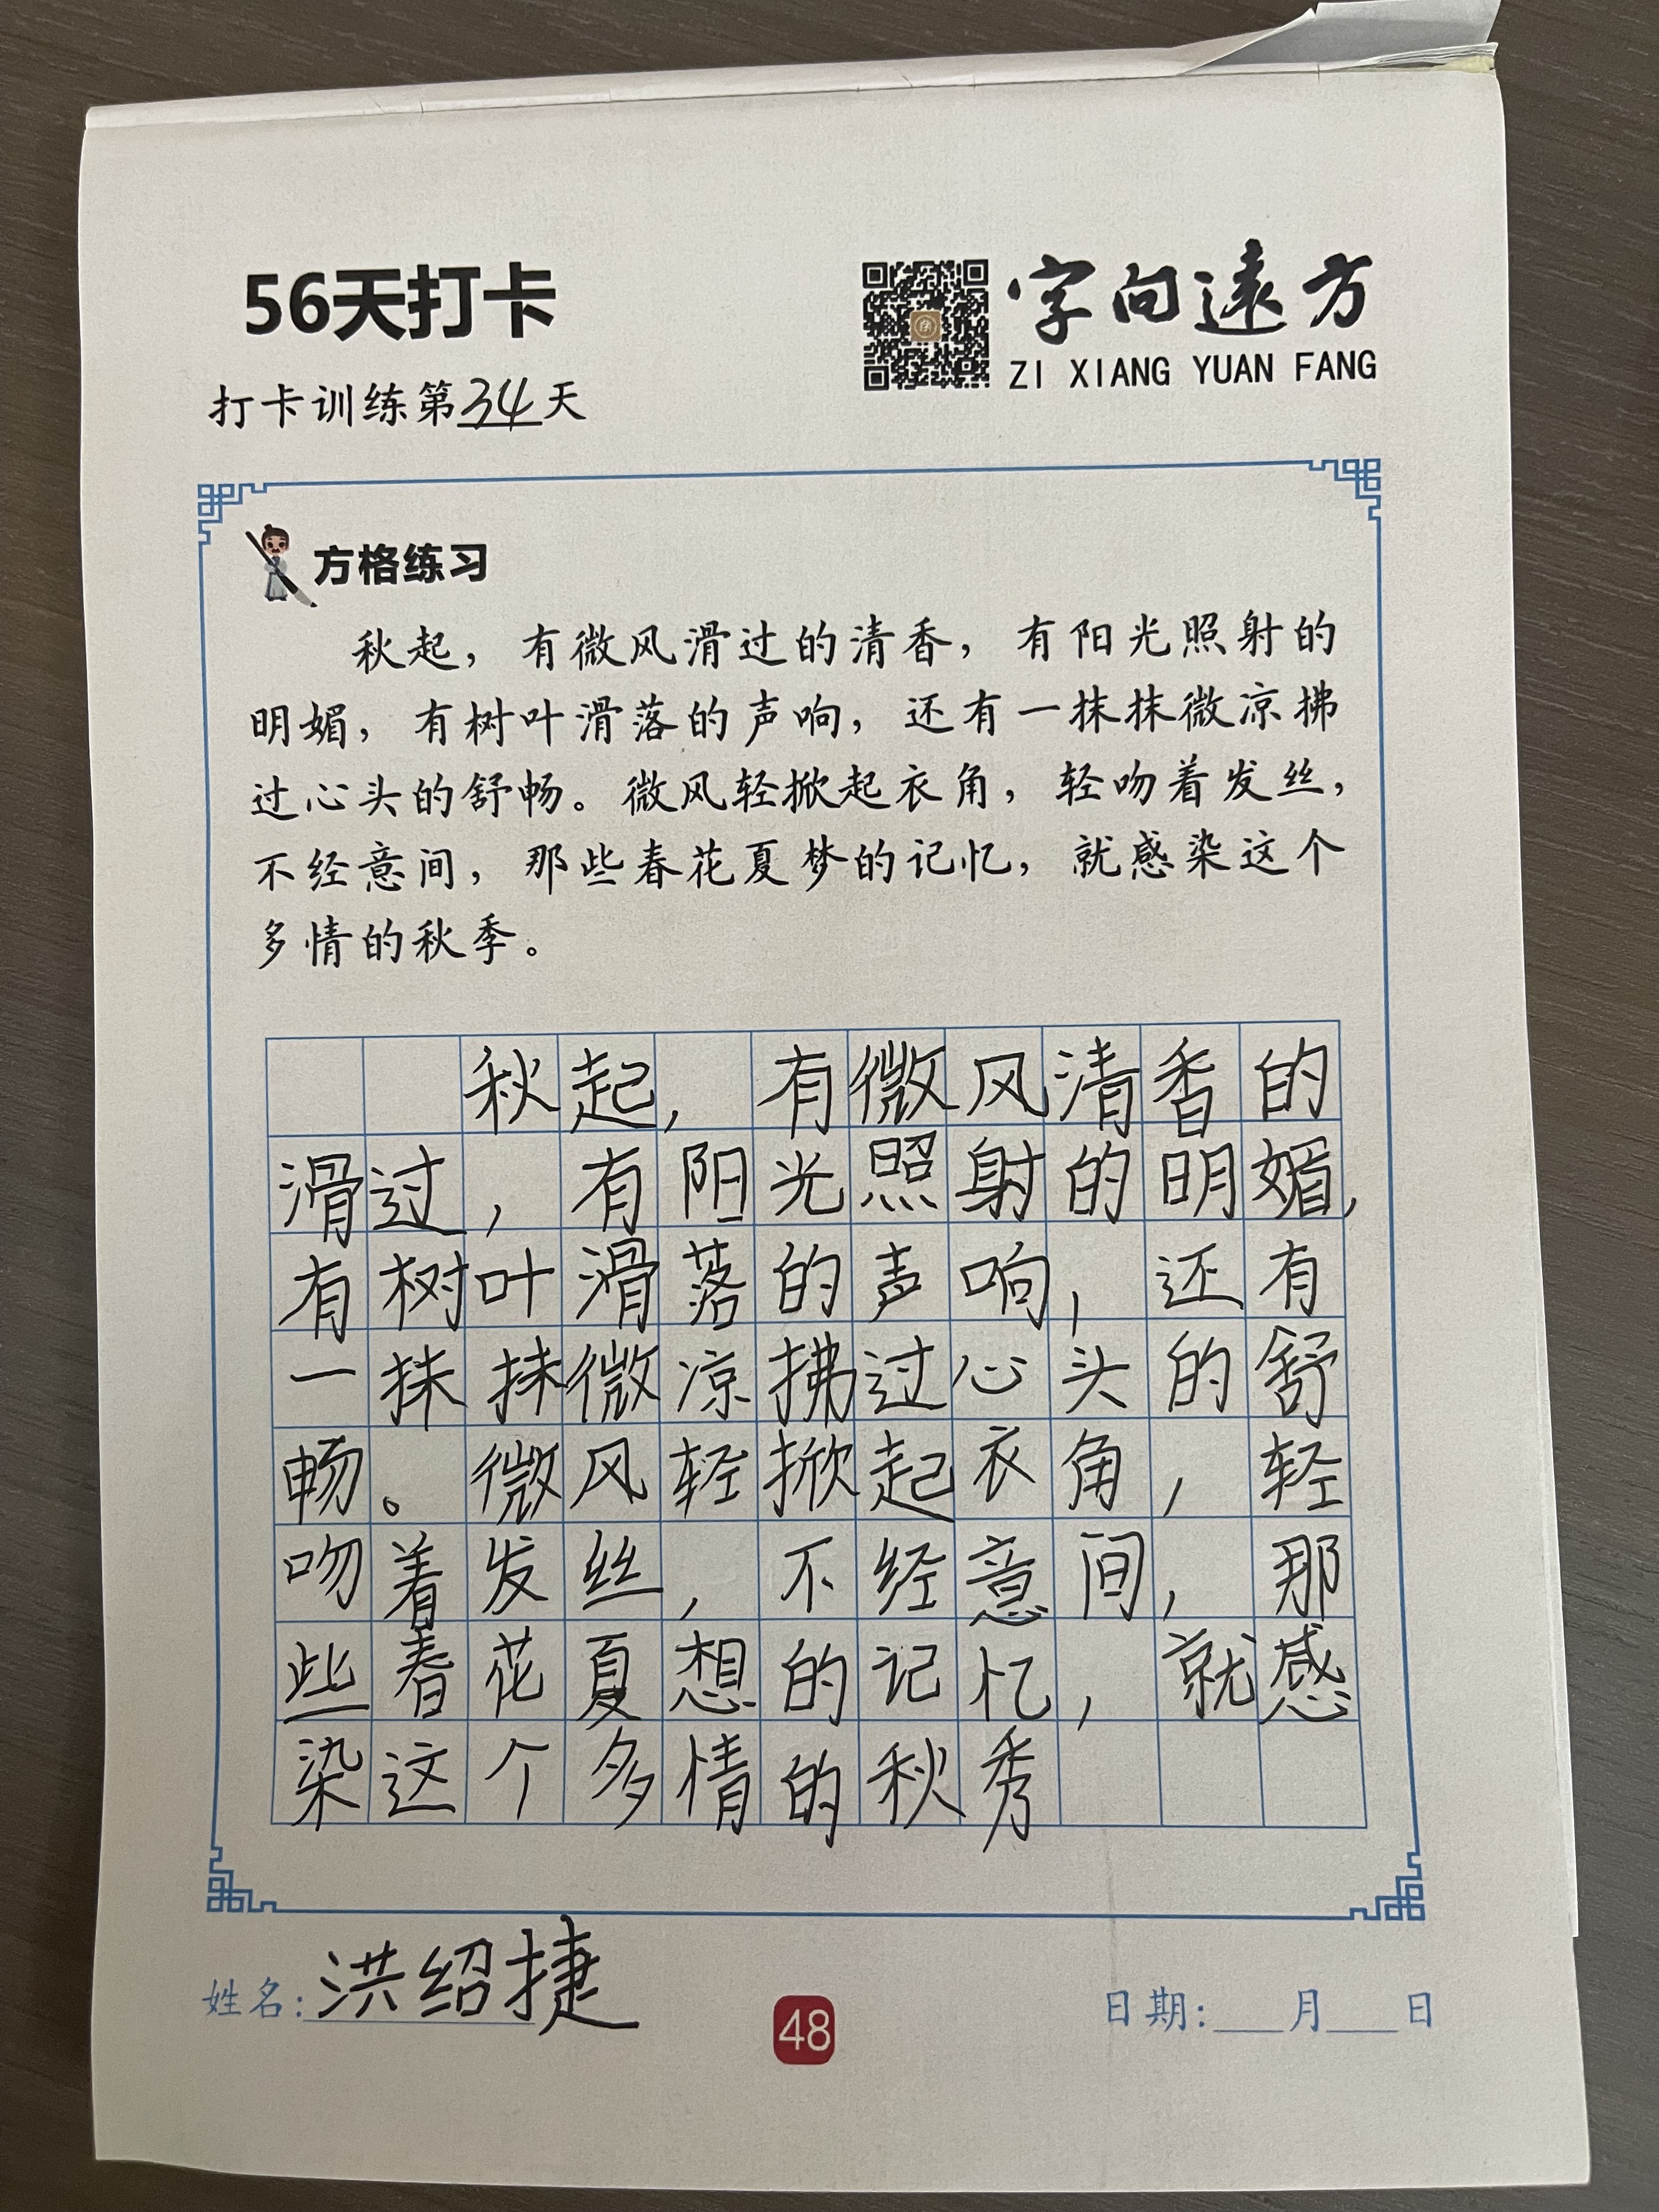 56天打卡
字向遠方
ZI XIANG YUAN FANG
打卡训练第34天
方格练习
秋起，有微风滑过的清香，有阳光照射的
明媚，有树叶滑落的声响，还有一抹抹微凉拂
过心头的舒畅。微风轻掀起衣角，轻吻着发丝，
不经意间，那些春花夏梦的记忆，就感染这个
多情的秋季。
秋起，有微风清香的
滑过，有阳光照射的明媚，
有树叶滑落的声响，还有
一抹抹微凉拂过心头的舒
畅。微风轻掀起衣角，轻
吻着发丝，不经意间，那
些春花夏想的记忆，就感
染这个多情的秋秀
姓名：洪绍捷
48
日期：___月___日